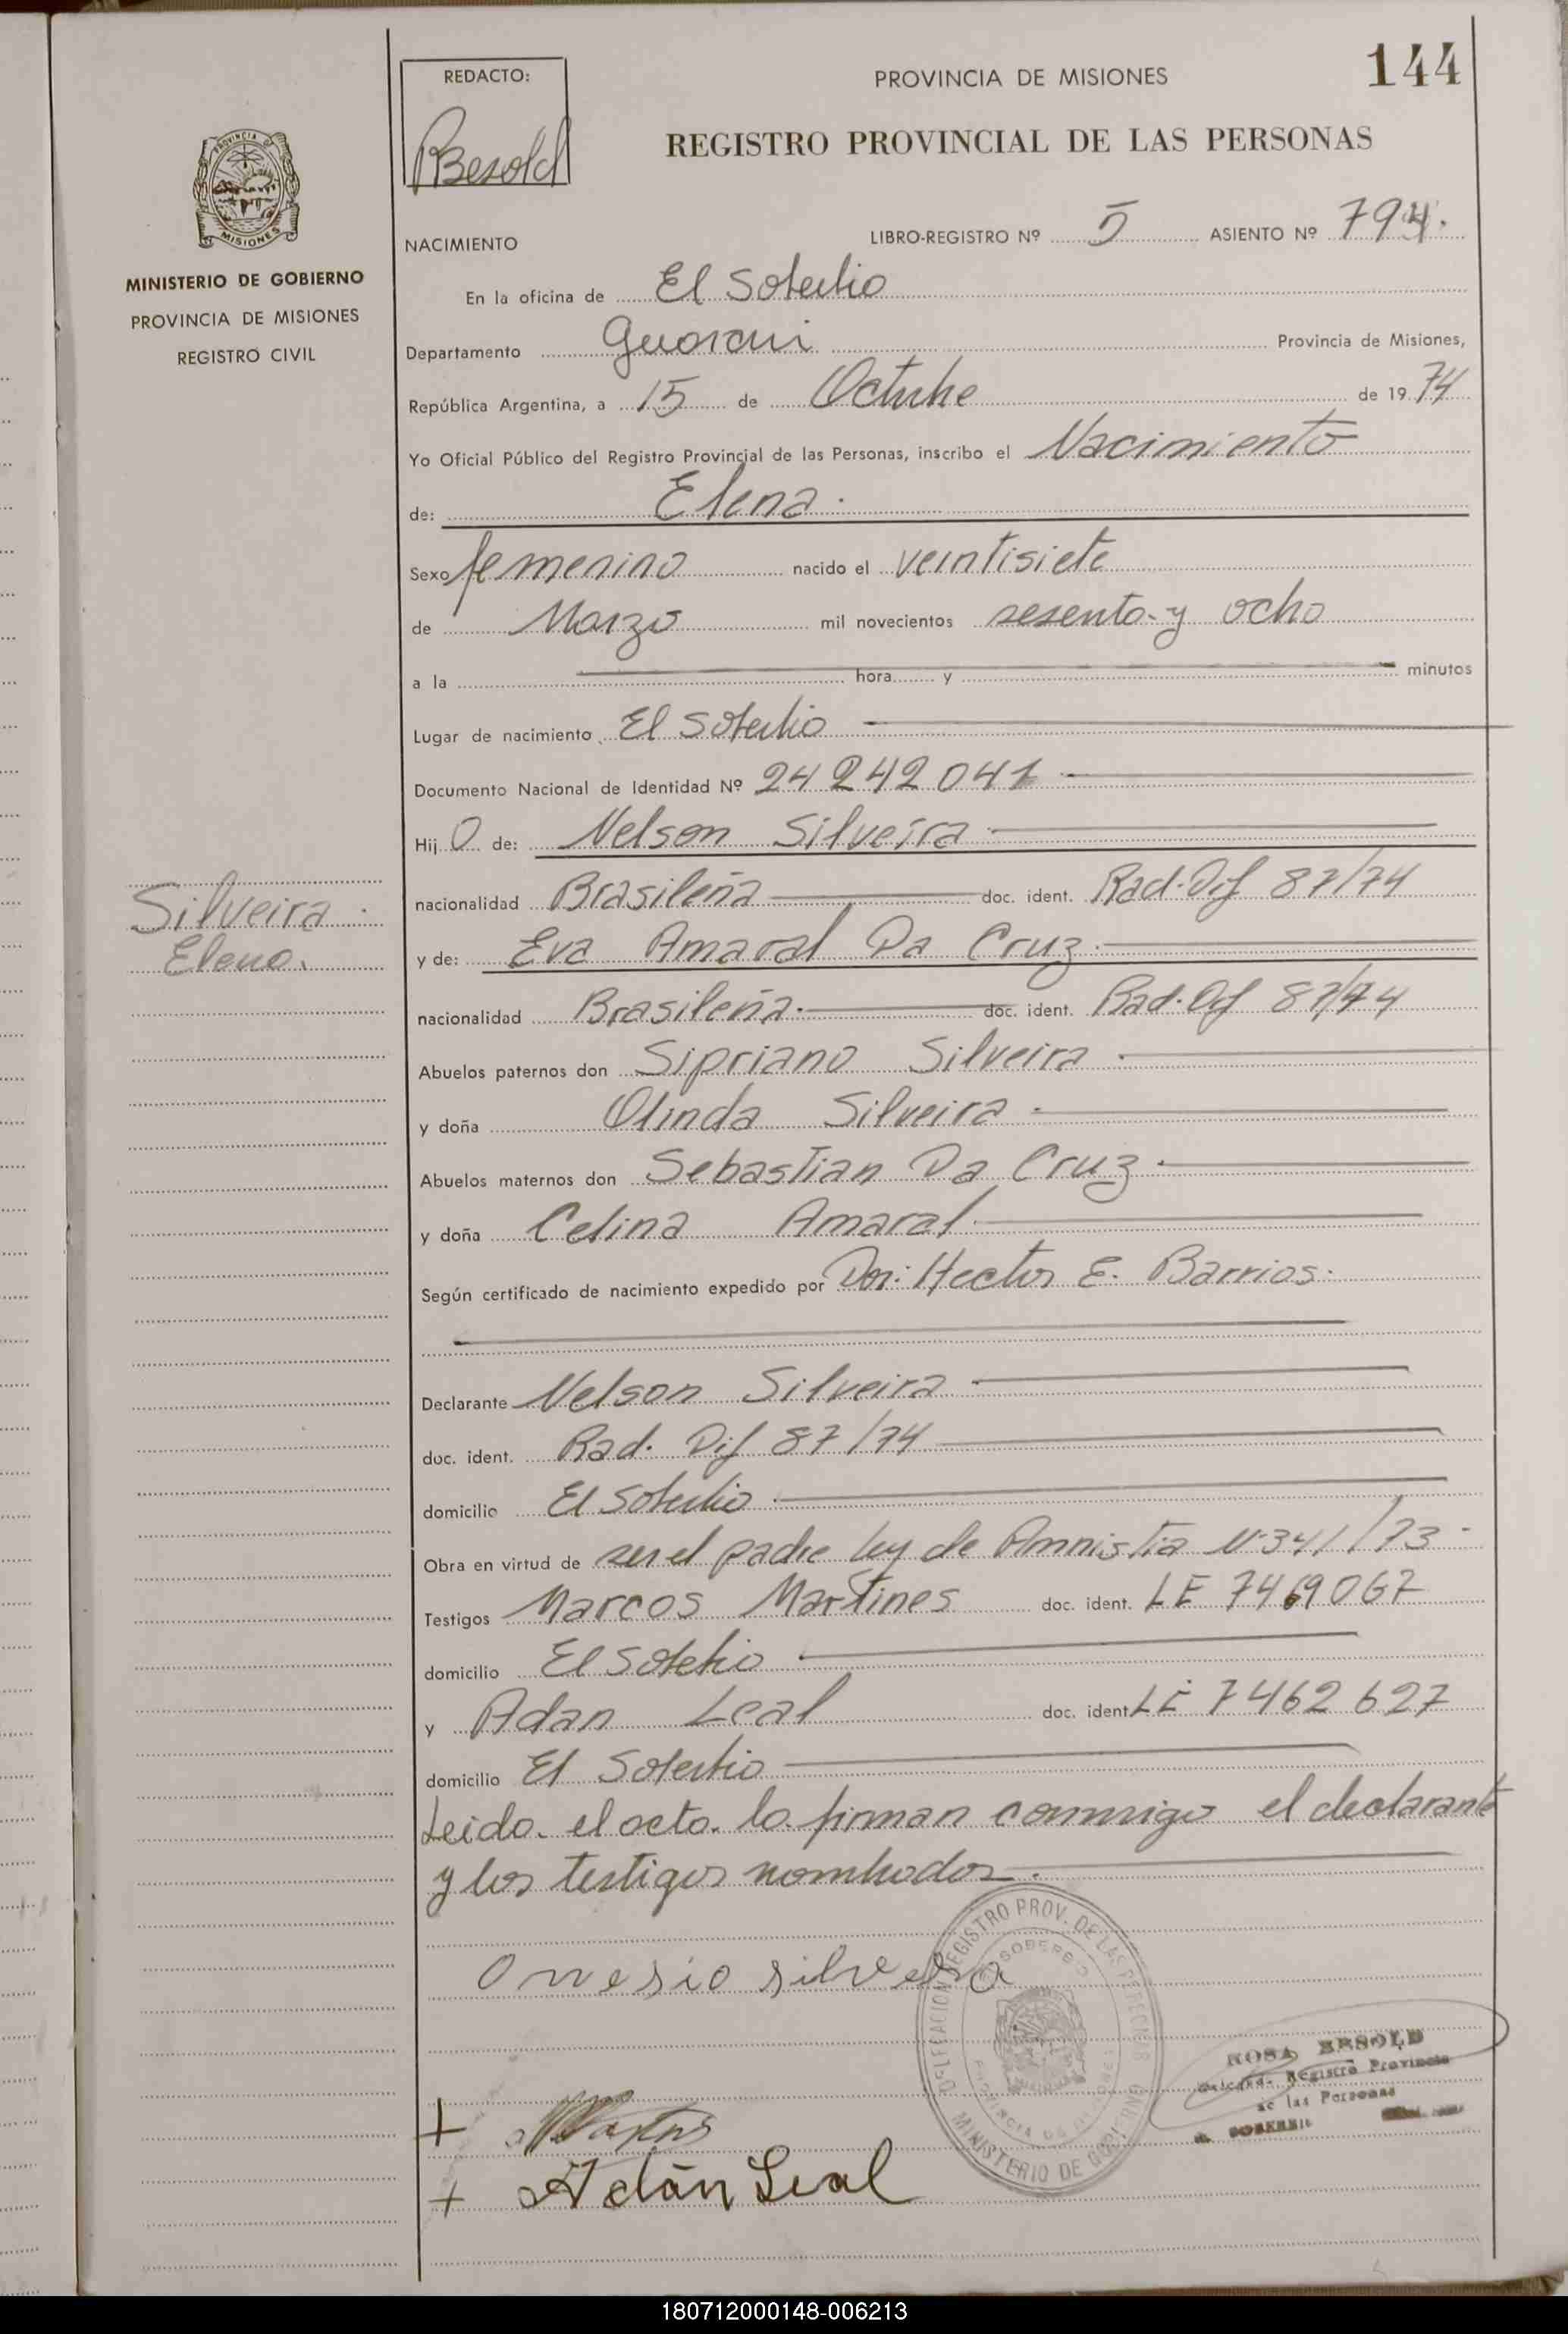 144
REDACTO:
Besold
PROVINCIA DE MISIONES
REGISTRO PROVINCIAL DE LAS PERSONAS
PROVINCIA DE
MISIONES
MINISTERIO DE GOBIERNO
PROVINCIA DE MISIONES
REGISTRO CIVIL
NACIMIENTO
LIBRO-REGISTRO Nº 5 ASIENTO Nº 794.
En la oficina de El Soberbio
Departamento Guarani Provincia de Misiones,
República Argentina, a 15 de Octubre de 1974
Yo Oficial Público del Registro Provincial de las Personas, inscribo el Nacimiento
de: Elena.
Sexo femenino nacido el veintisiete
de Marzo mil novecientos sesenta y ocho
a la hora y minutos
Lugar de nacimiento El Soberbio
Documento Nacional de Identidad Nº 24242041
Hij O de: Nelson Silveira
nacionalidad Brasileña doc. ident. Rad. Dif 87/74
Silveira
Elena.
y de: Eva Amaral Da Cruz
nacionalidad Brasileña. doc. ident. Rad. Dif 87/74
Abuelos paternos don Sipriano Silveira
y doña Olinda Silveira
Abuelos maternos don Sebastian Da Cruz
y doña Celina Amaral
Según certificado de nacimiento expedido por Dor: Hector E. Barrios.
Declarante Nelson Silveira
doc. ident. Rad. Dif 87/74
domicilio El Soberbio
Obra en virtud de ser el padre ley de Amnistia Nº 341/73
Testigos Marcos Martines doc. ident. LE 7469067
domicilio El Soberbio
y Adan Leal doc. ident. LE 7462627
domicilio El Soberbio
Leido el acta lo firman conmigo el declarante
y los testigos nombrados.
Onesio silveira
DELEGACION REGISTRO PROV. DE LAS PERSONAS
SOBERBIO
PROVINCIA DE MISIONES
MINISTERIO DE GOBIERNO
ROSA BESOLD
Registro Provincia
de las Personas
SOBERBIO
+
+ Adán Leal
180712000148-006213